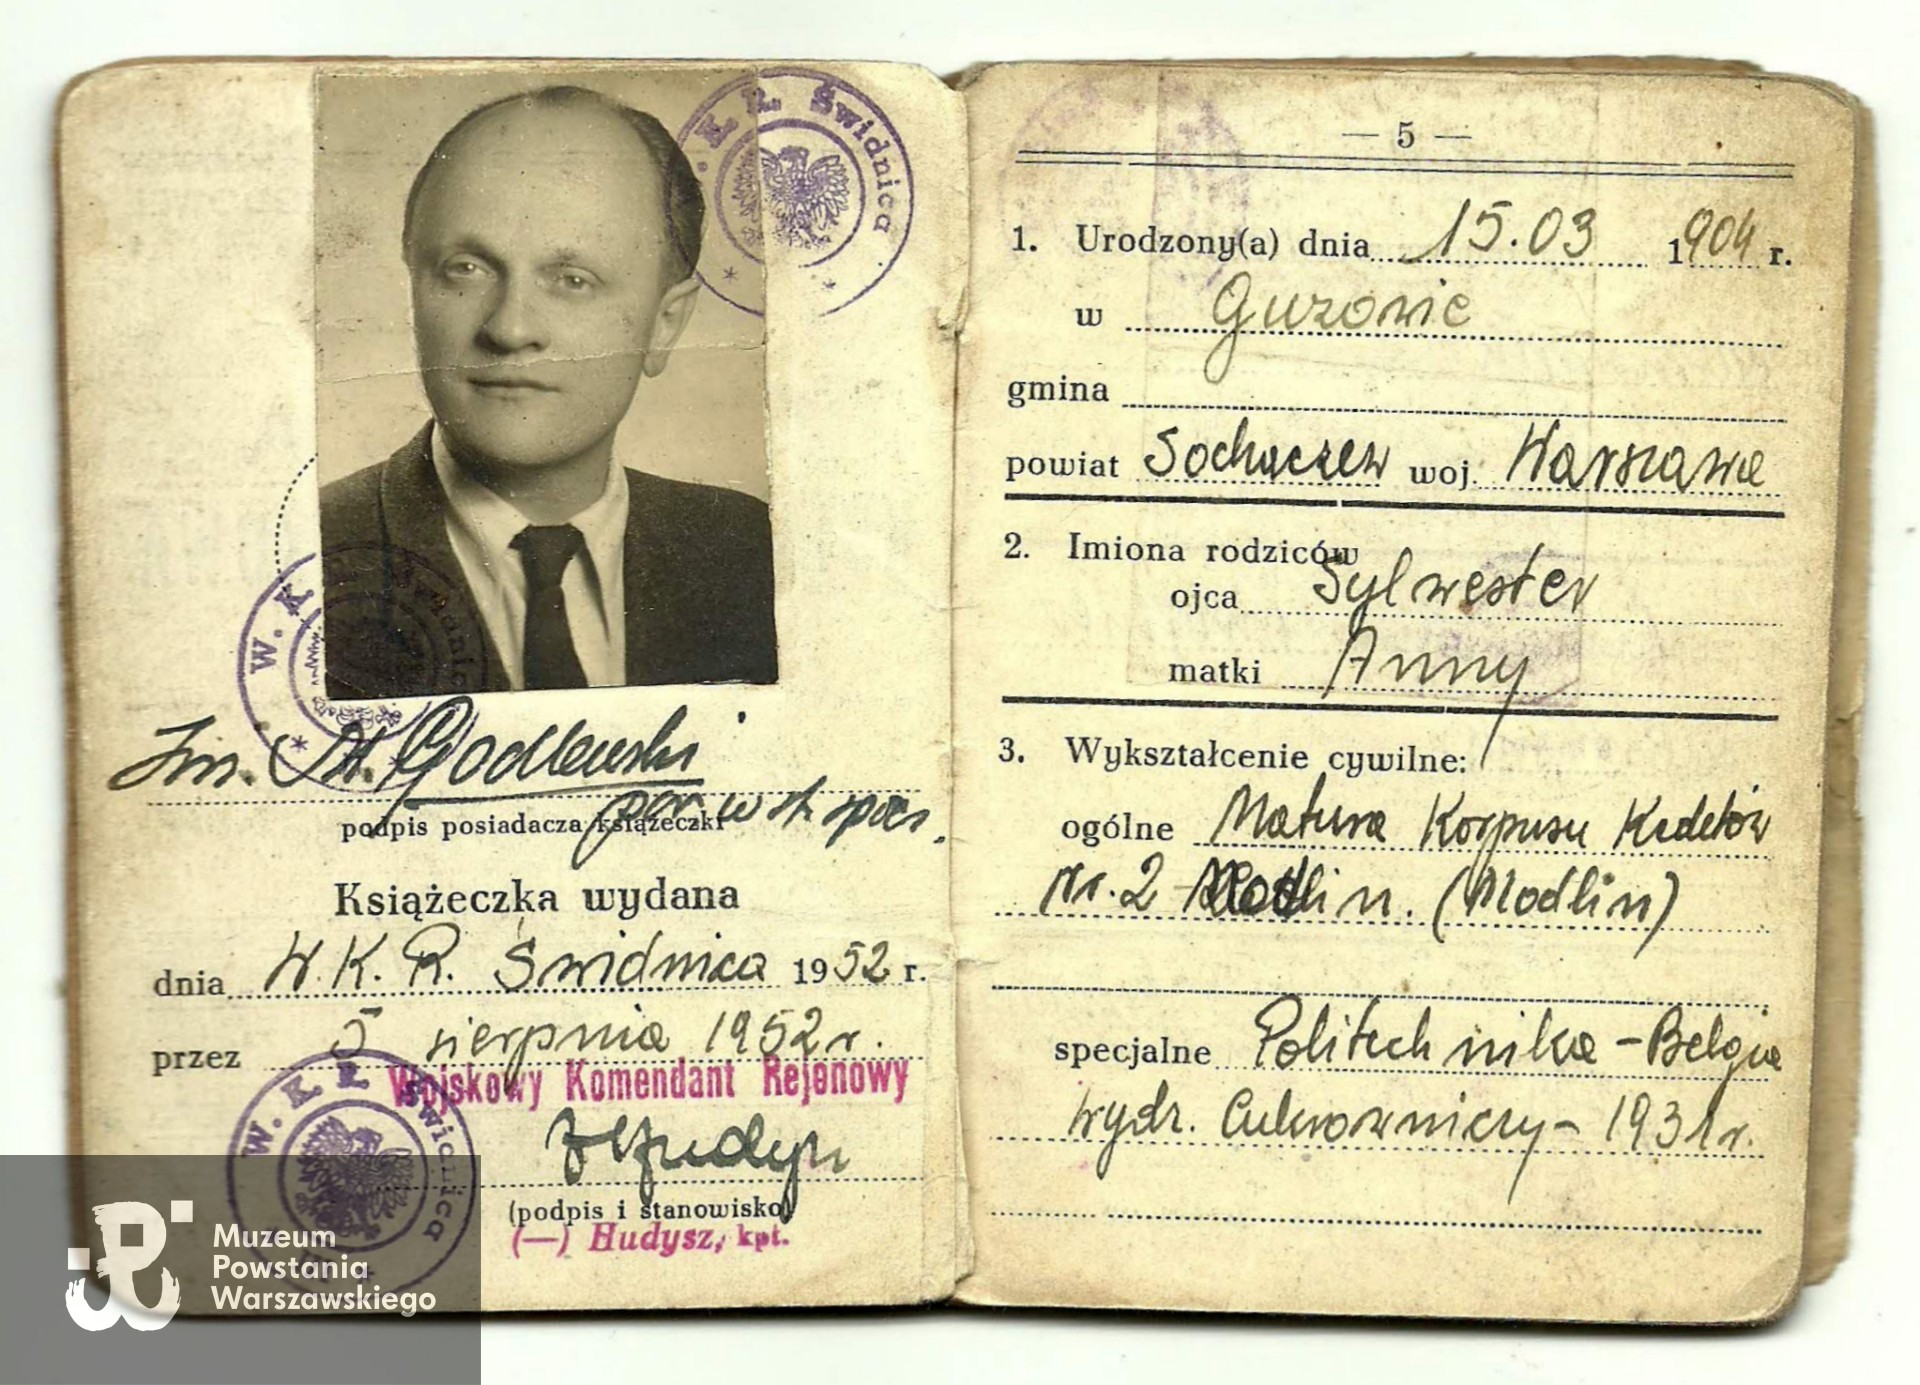 W. K. R. Świdnica
W. K. R. Świdnica
Inż. St. Godlewski
por. w st. spocz.
podpis posiadacza książeczki
Książeczka wydana
dnia W. K. R. Świdnica 1952 r.
przez 5 sierpnia 1952 r.
Wojskowy Komendant Rejonowy
W. K. R. Świdnica
(podpis i stanowisko)
(—) Hudysz, kpt.
Muzeum
Powstania
Warszawskiego
— 5 —
1. Urodzony(a) dnia 15.03 1904 r.
w Guzowie
gmina
powiat Sochaczew woj. Warszawa
2. Imiona rodziców
ojca Sylwester
matki Anny
3. Wykształcenie cywilne:
ogólne Matura Korpusu Kadetów
Nr. 2 (Modlin)
specjalne Politechnika - Belgia
wydz. Cukrowniczy - 1931 r.